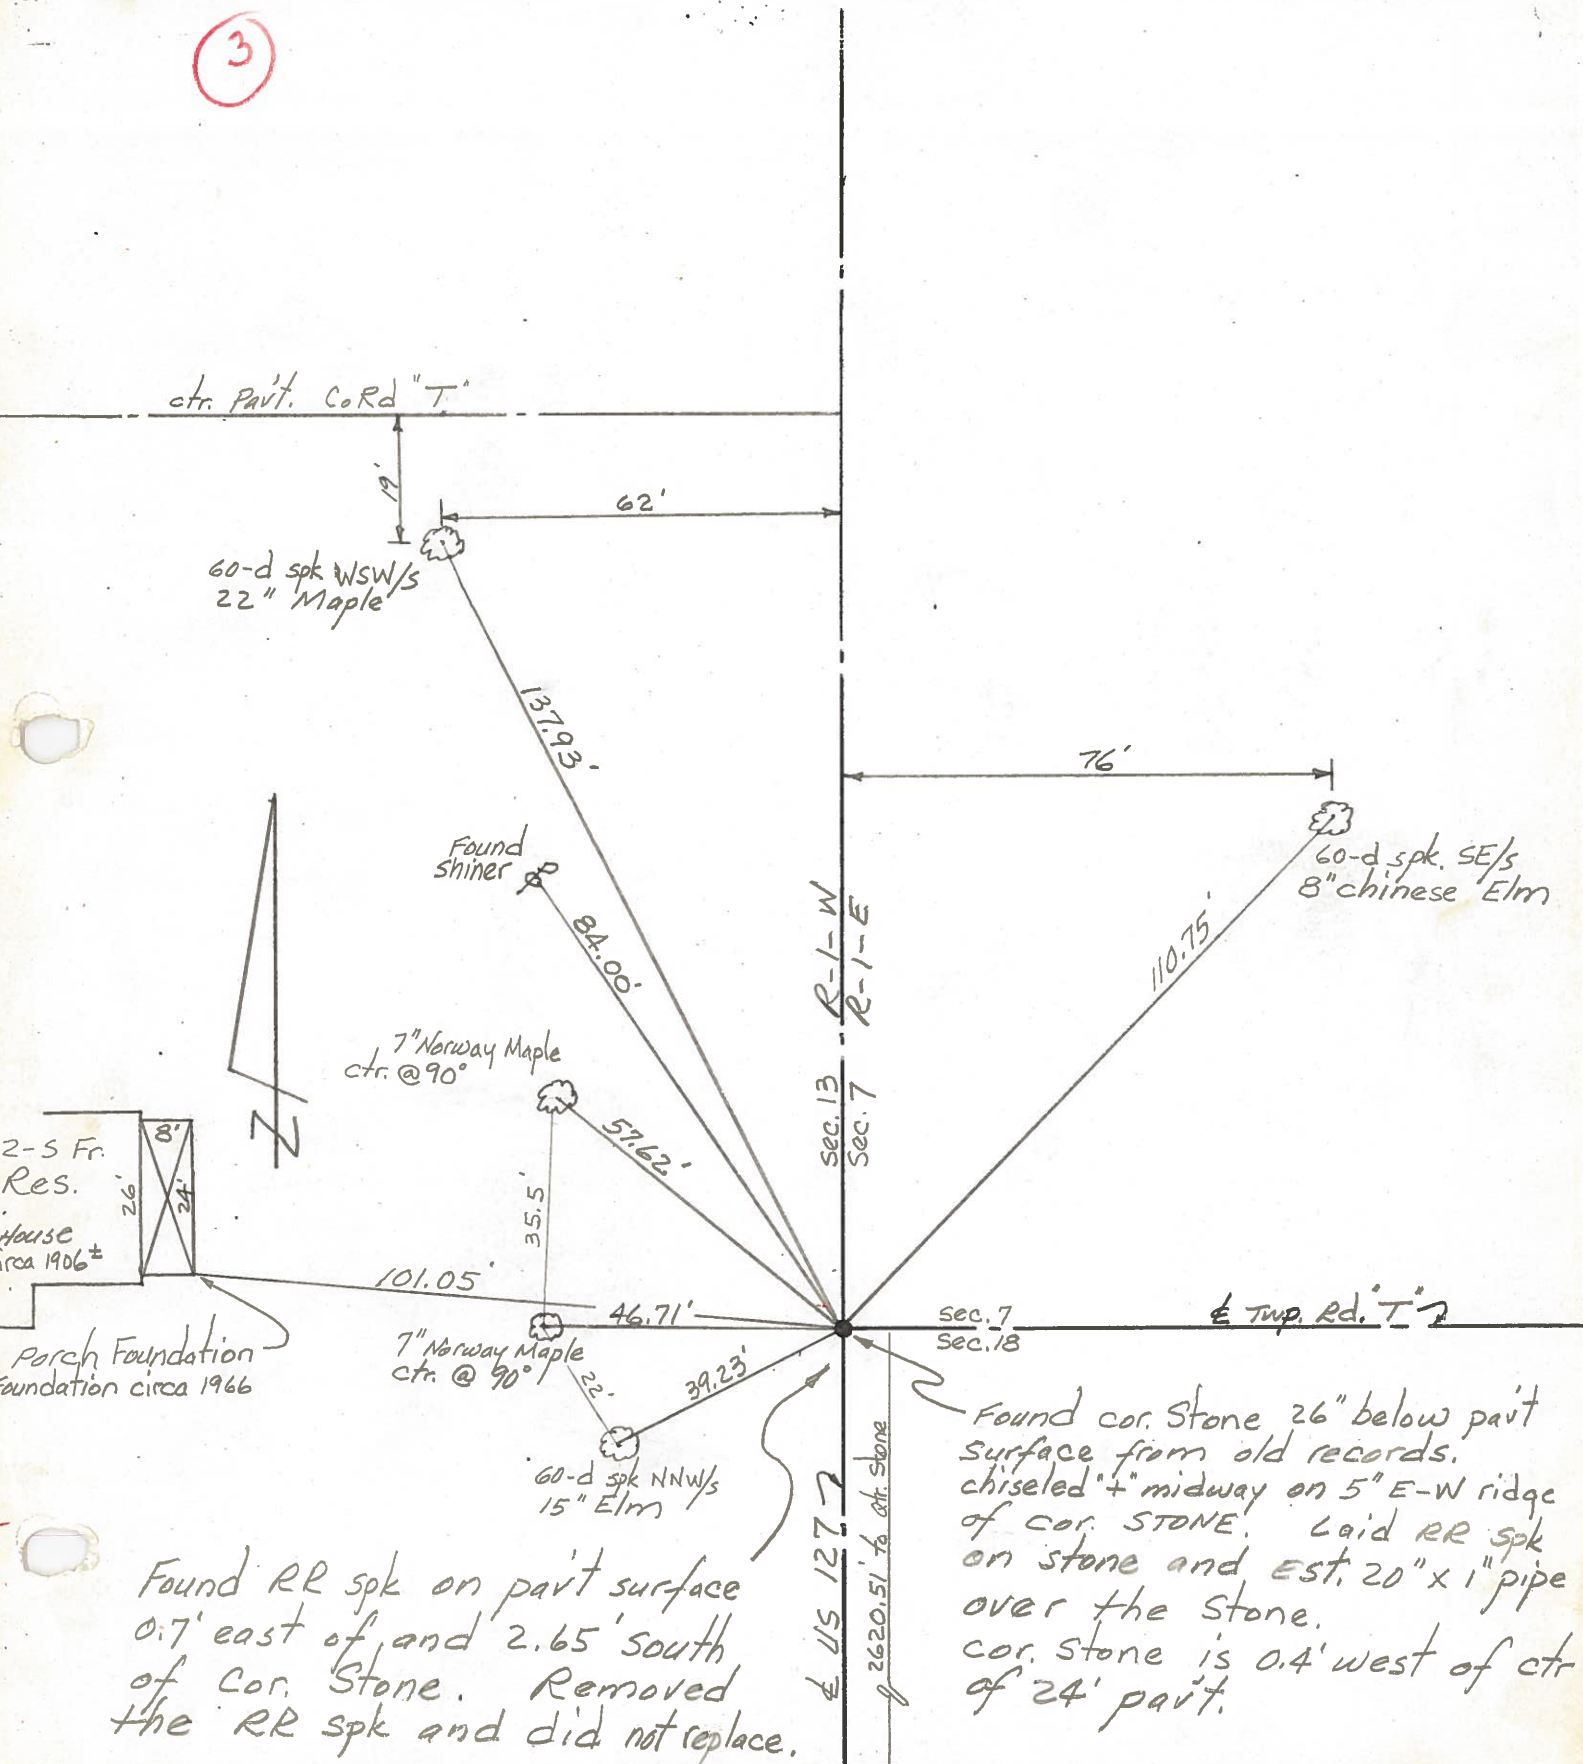 3
ctr. Pav't. Co Rd "T"
19'
62'
60-d spk WSW/s
22" Maple
137.93'
76'
Found
shiner
60-d spk. SE/s
8" chinese Elm
84.00'
110.75'
R-1-W
R-1-E
7" Norway Maple
ctr. @ 90°
57.62'
Sec. 13
Sec. 7
N
8'
2-S Fr.
Res.
26'
24'
House
irca 1906±
35.5'
101.05'
46.71'
Sec. 7
Sec. 18
℄ Twp. Rd. "T"
Porch Foundation
Foundation circa 1966
7" Norway Maple
ctr. @ 90°
22'
39.23'
60-d spk NNW/s
15" Elm
Found cor. Stone 26" below pav't
surface from old records.
chiseled "+" midway on 5" E-W ridge
of cor. STONE. Laid RR spk
on stone and Est. 20" x 1" pipe
over the Stone.
cor. Stone is 0.4' west of ctr
of 24' pav't.
Found RR spk on pav't surface
0.7' east of, and 2.65' south
of Cor. Stone. Removed
the RR spk and did not replace.
℄ US 127
2620.51' to Qtr. Stone